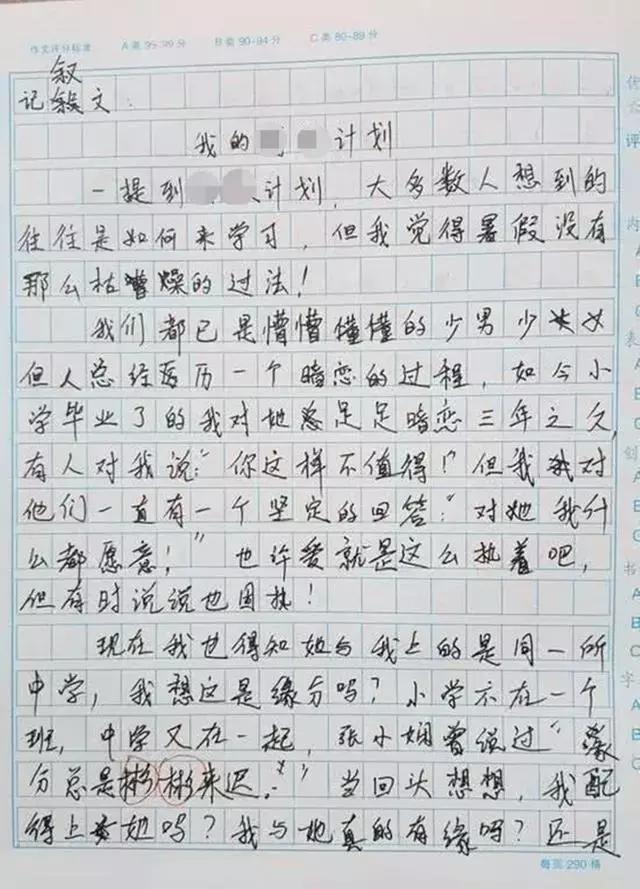 作文评分标准 A类95-99分 B类90-94分 C类80-89分
叙
记叙文:
我的 计划
一提到 计划,大多数人想到的
往往是如何来学习,但我觉得暑假没有
那么枯燥的过法!
我们都已是懵懵懂懂的少男少女
但人总经历一个暗恋的过程,如今小
学毕业了的我对她足足暗恋三年之久
有人对我说:“你这样不值得!”但我对
他们一直有一个坚定的回答:“对她我什
么都愿意!”也许爱就是这么执着吧,
但有时说说也固执!
现在我也得知她与我上的是同一所
中学,我想这是缘分吗?小学不在一个
班,中学又在一起,张小娴曾说过“缘
分总是彬彬来迟.”当回头想想,我配
得上她吗?我与她真的有缘吗?还是
每页290格
评
内
A
B
C
表
创
书
A
B
C
字
A
B
C